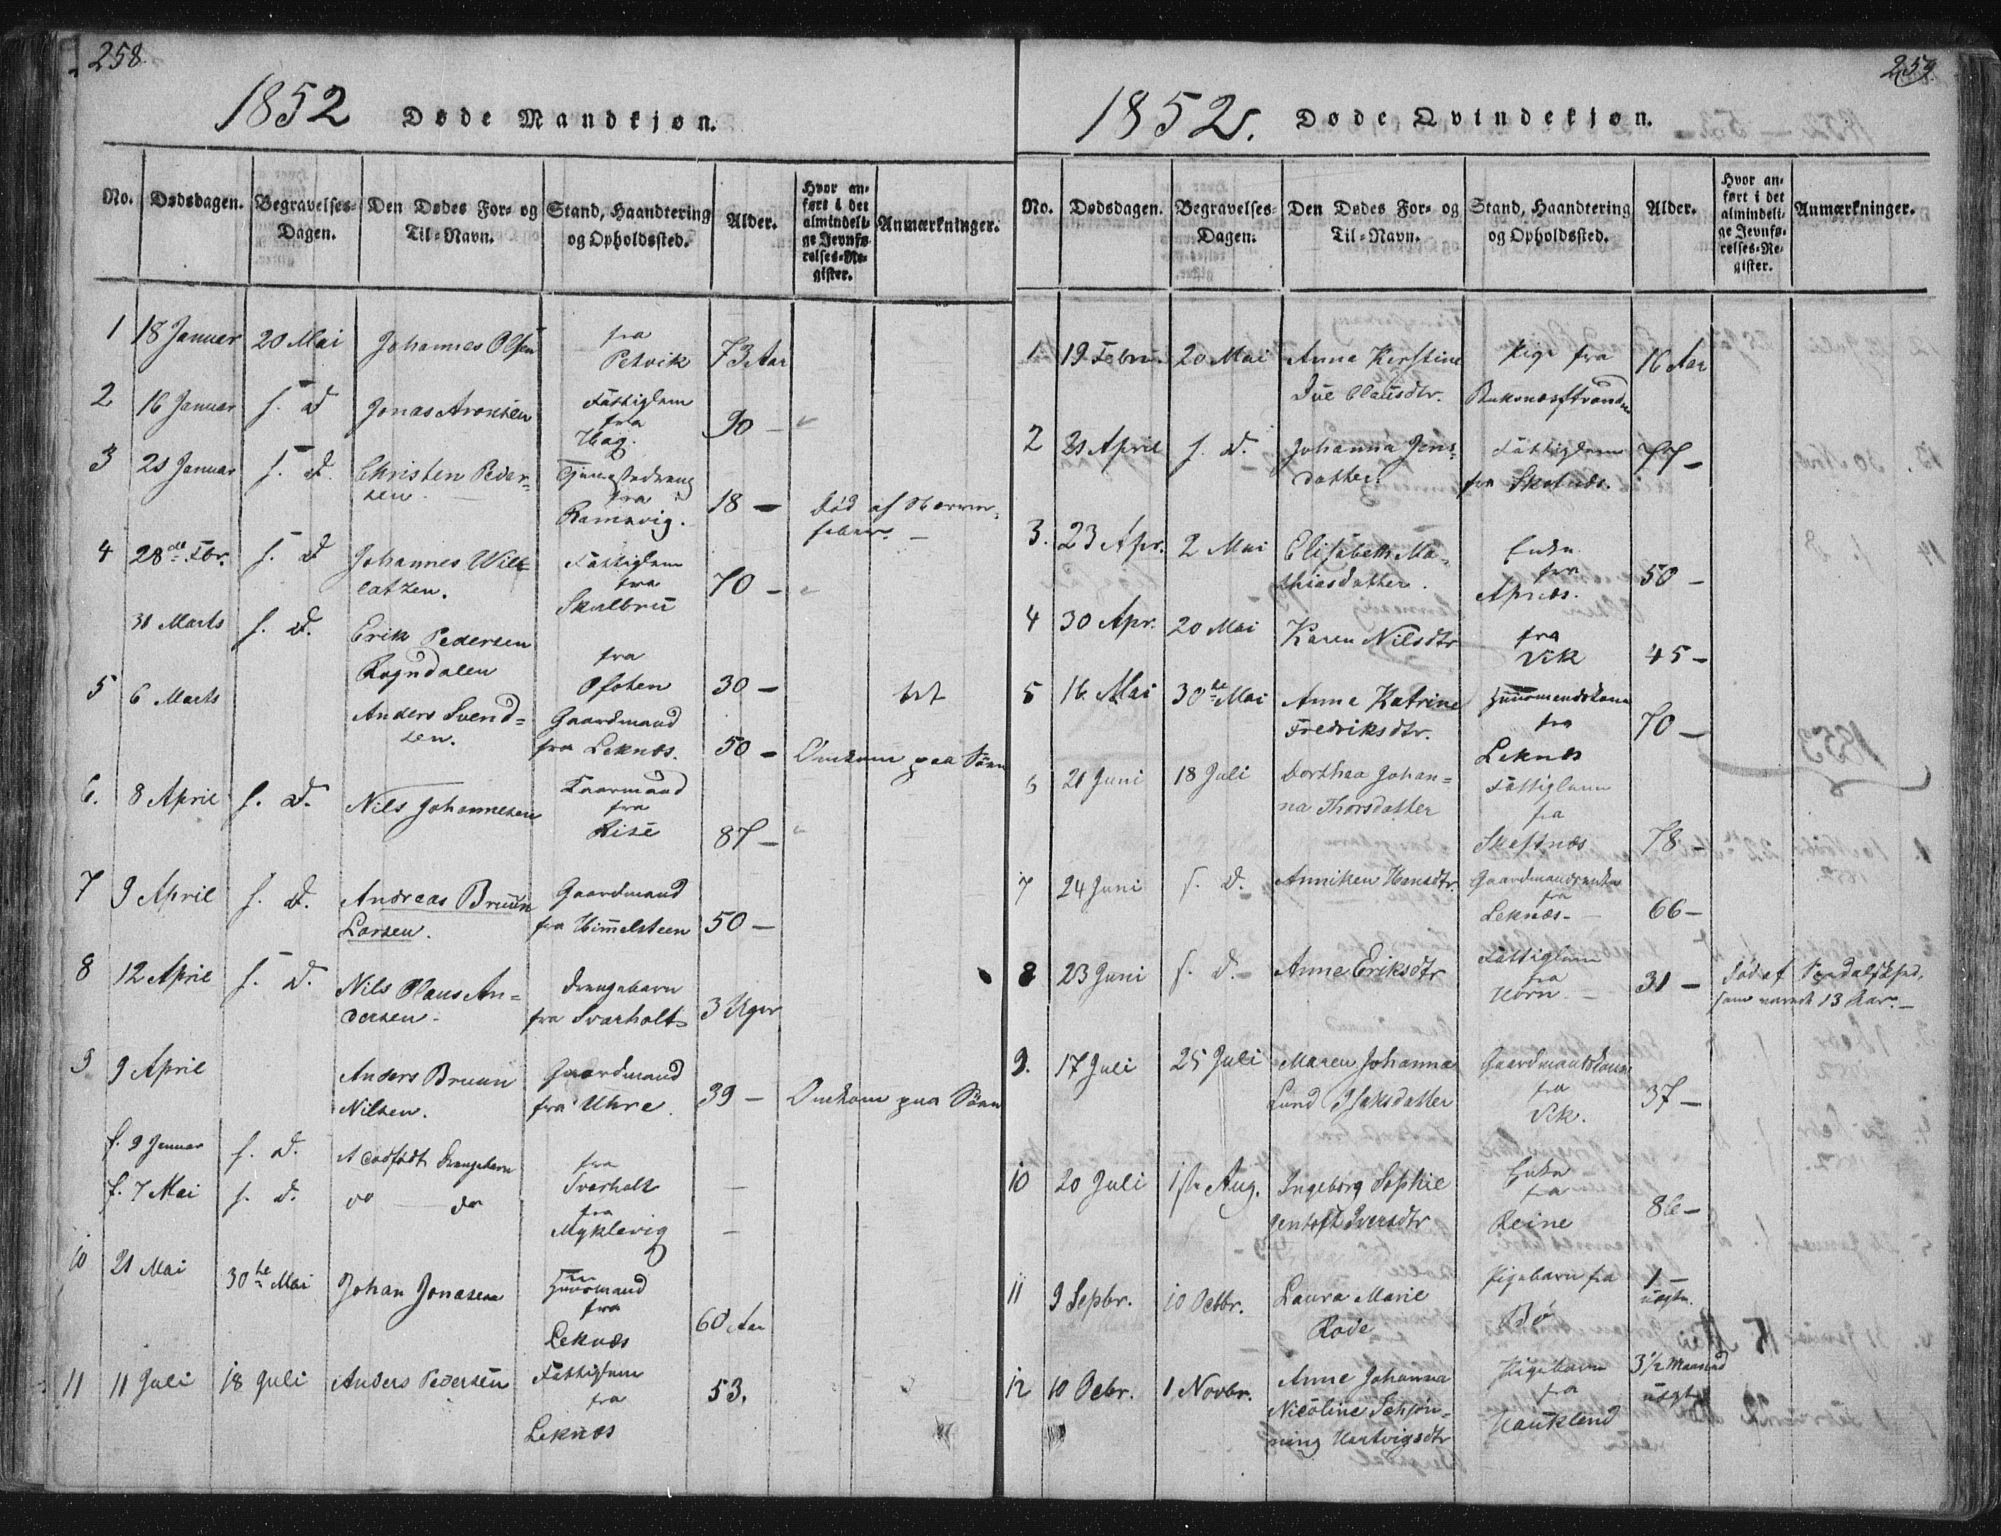 258.
1852 Døde Mandkjøn.
No. Dødsdagen. Begravelses-Dagen. Den Dødes For- og Til-Navn. Stand, Haandtering og Opholdssted. Alder. Hvor anført i det almindelige Jevnførelses-Register. Anmærkninger.
1 18 Januar 20 Mai Johannes Olsen fra Petvik 73 Aar
2 16 Januar s. D. Jonas Aronsen Fattiglem fra Hag. 90 — "
3 21 Januar s. D. Christen Peder-
sen. Tjenestedreng fra Ramsvig. 18 — Død af Nerve-
feber. —
4 28de Fbr. s. D. Johannes Will-
atzen. Fattiglem fra Skulbru 70 — "
31 Marts s. D. Erik Pedersen
Rogndalen fra Ofoten 30 —
5 6 Marts Anders Svend-
sen. Gaardmand
fra Leknæs. 50 — Omkom paa Søen
6. 8 April s. D. Nils Johannesen Kaarmand
fra
Rise 87 — "
7 9 April s. D. Andreas Bruun
Larsen. Gaardmand
fra Himmelsteen 50 —
8 12 April s. D. Nils Olaus An-
dersen. Drengebarn
fra Svarholt 3 Uger
9 9 April Anders Bruun
Nilsen. Gaardmand
fra Uhre. 39 — Omkom paa Søen
f. 9 Januar s. D. Et dødfødt Drengebarn fra
Svarholt —
f. 7 Mai s. D. do — do fra
Myklevig —
10 21 Mai 30te Mai Johan Jonasen Huusmand
fra
Leknæs 60 Aar
11 11 Juli 18 Juli Anders Pedersen Fattiglem
fra
Leknæs 53.
259.
1852. Døde Qvindekjøn.
No. Dødsdagen. Begravelses-Dagen. Den Dødes For- og Til-Navn. Stand, Haandtering og Opholdssted. Alder. Hvor anført i det almindelige Jevnførelses-Register. Anmærkninger.
1. 19 Febru. 20 Mai Anna Kirstine
Due Clausdtr. Pige fra
Buksnæsstranden 16 Aar
2 21 April s. D. Johanna Jens-
datter. Fattiglem
fra 77 —
3. 23 Apr. 2 Mai Elisabeth Ma-
thiasdatter. Enke
fra
50 —
4 30 Apr. 20 Mai Karen Nilsdtr fra
Vik 45 —
5 16 Mai 30te Mai Anne Katrine
Fredriksdtr. Huusmandskone
fra
Leknæs 70 —
6 21 Juni 18 Juli Dorthea Johan-
na Thorsdatter Fattiglem
fra
78 —
7 24 Juni s. D. Anniken Hansdtr. Gaardmandsenke
fra
Leknæs — 66 —
8 23 Juni s. D. — Anne Eriksdtr Fattiglem
fra
Horn — 31 — Død af Spedalskhed,
som varede 13 Aar. —
9. 17 Juli 25 Juli Maren Johanna
Lund Isaksdatter Gaardmandskone
fra
Vik. 37 —
10 20 Juli 1ste Aug. Ingeborg Sophie
Jentoft Iversdtr Enke
fra
Reine 86 —
11 9 Sepbr. 10 Octbr. Laura Marie
Rode Pigebarn fra
Bø 1 —
uægte.
12 10 Ocbr. 1 Novbr. Anne Johanna
Nicoline Schjøn-
ning Hartvigsdtr Pigebarn
fra
Haukland 3½ Maaned
uægte